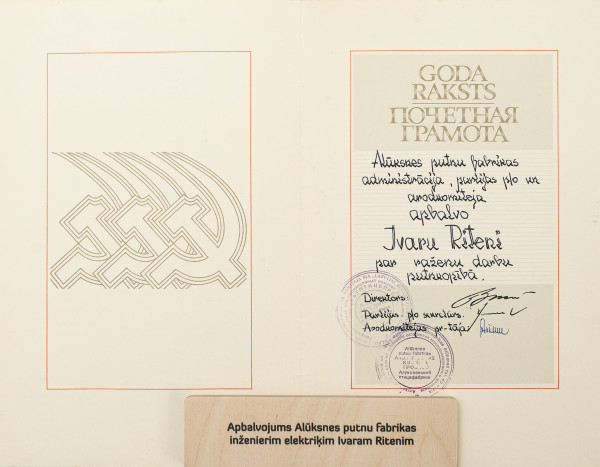 GODA
RAKSTS
ПОЧЕТНАЯ
ГРАМОТА
Alūksnes putnu fabrikas
administrācija, partijas p/o un
arodkomiteja
apbalvo
Ivaru Riteni
par raženu darbu
putnkopībā.
Direktors
Partijas p/o sekretārs.
Arodkomitejas pr-tāja
Alūksnes
putnu fabrikas
Алуксненской
птицефабрики
Apbalvojums Alūksnes putnu fabrikas
inženierim elektriķim Ivaram Ritenim